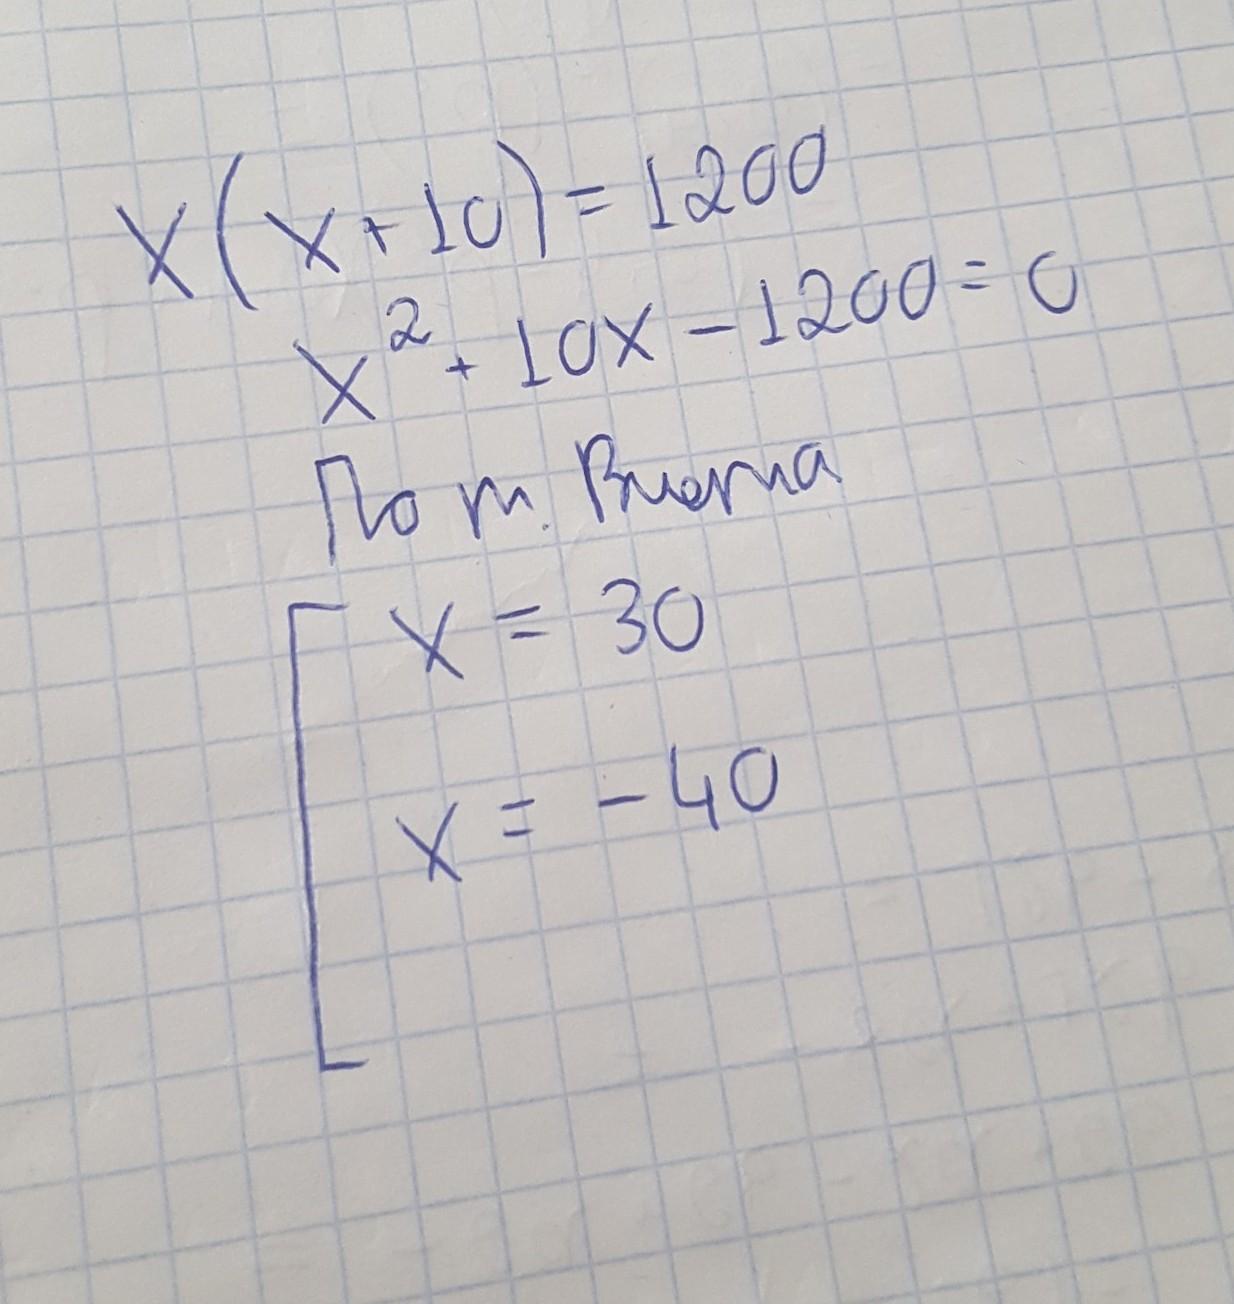 x(x+10)=1200
x²+10x-1200=0
По т. Виета
x = 30
x = -40